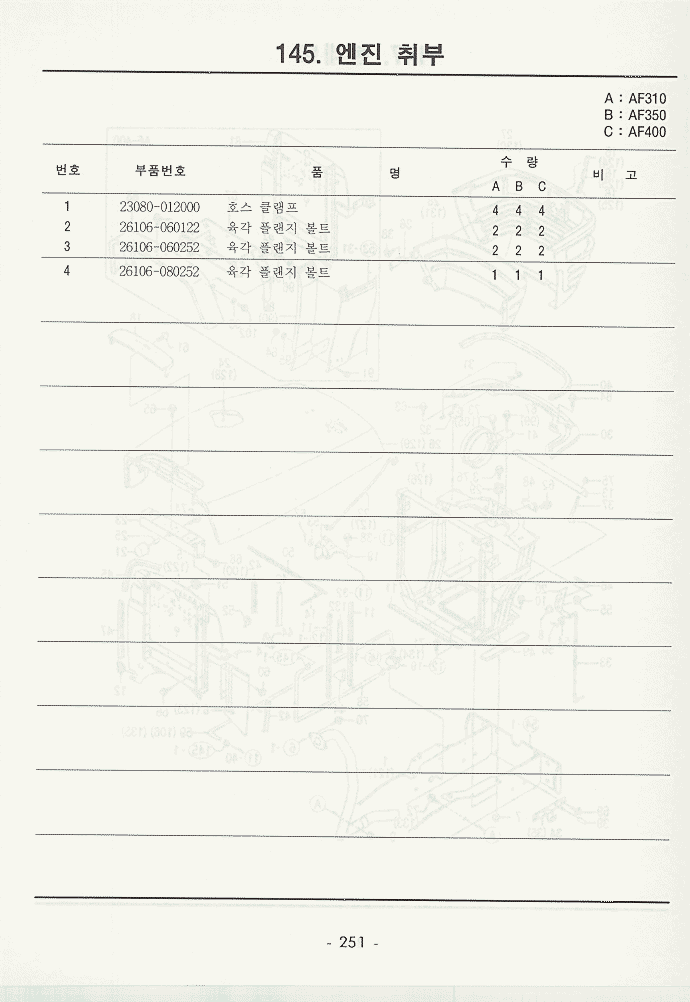 145. 엔진 취부
A : AF310
B : AF350
C : AF400
번호 부품번호 품 명 수 량 비 고
A B C
1 23080-012000 호스 클램프 4 4 4
2 26106-060122 육각 플랜지 볼트 2 2 2
3 26106-060252 육각 플랜지 볼트 2 2 2
4 26106-080252 육각 플랜지 볼트 1 1 1
- 251 -